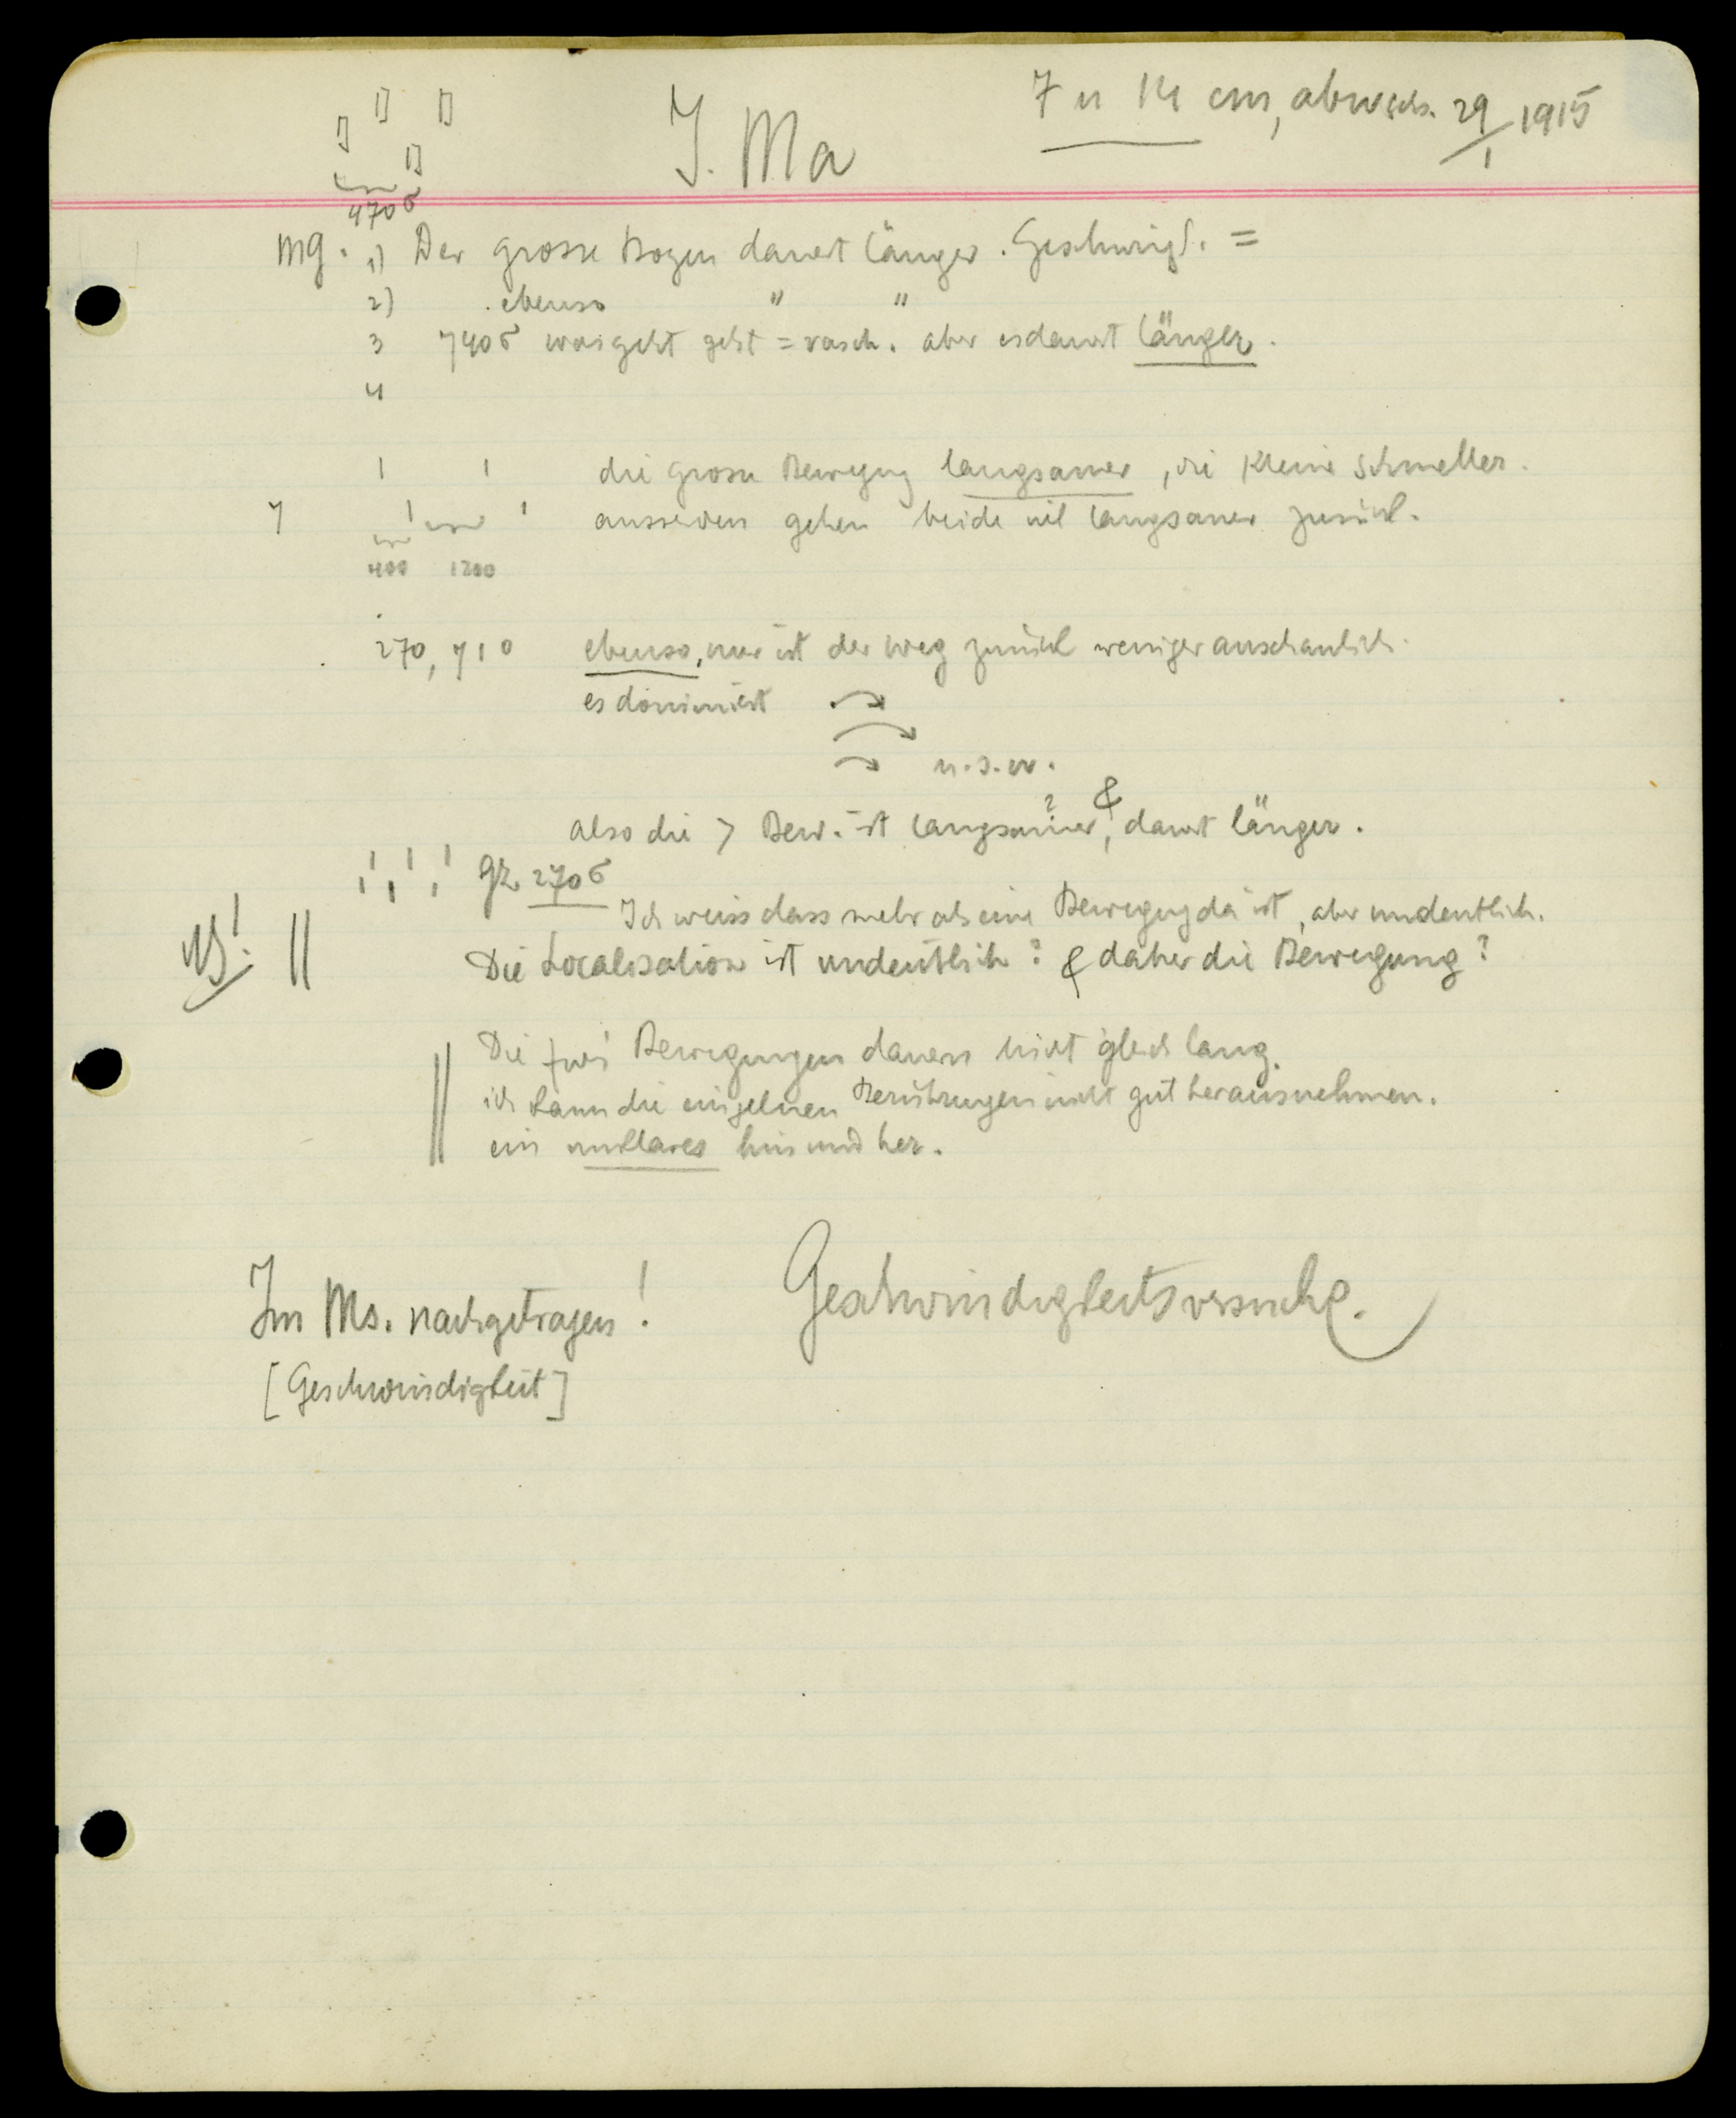 J. Ma
7 u 14 cm, abwechs. 29/1 1915
470 σ
mg. 1) Der grosse Bogen dauert länger. Geschwigk. =
2) ebenso " "
3 740 σ geht = rasch. aber es dauert länger.
4
die grosse Bewegung langsamer, die kleine schneller.
7 ausserdem gehen beide viel langsamer zurück.
400 1200
270, 710 ebenso, nur ist der Weg zurück weniger anschaulich.
es dominiert
u.s.w.
also die > Bew. ist langsamer?, & dauert länger.
gr. 270 σ
Ich weiss dass mehr als eine Bewegung da ist, aber undeutlich.
NB! || Die Localisation ist undeutlich? & daher die Bewegung?
Die zwei Bewegungen dauern nicht gleich lang.
ich kann die einzelnen Berührungen nicht gut herausnehmen.
ein unklares hin und her.
Im Ms. nachgetragen! Geschwindigkeitsversuche.
[Geschwindigkeit]